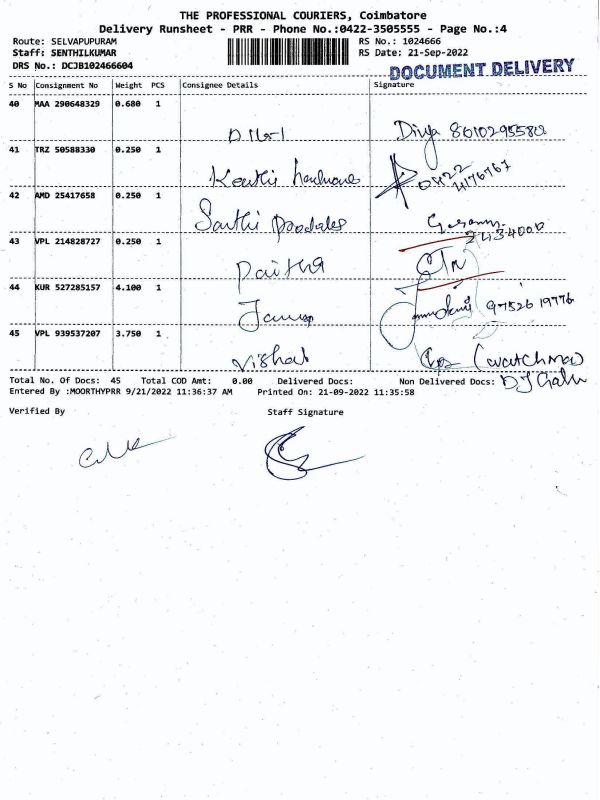 THE PROFESSIONAL COURIERS, Coimbatore
Delivery Runsheet - PRR - Phone No.:0422-3505555 - Page No.:4
Route: SELVAPUPURAM RS No.: 1024666
Staff: SENTHILKUMAR RS Date: 21-Sep-2022
DRS No.: DCJB102466604
DOCUMENT DELIVERY
S No Consignment No Weight PCS Consignee Details Signature
40 MAA 290648329 0.680 1
Divya
41 TRZ 50588330 0.250 1
0422
4176767
42 AMD 25417658 0.250 1
2434000
43 VPL 214828727 0.250 1
44 KUR 527285157 4.100 1
9752619776
45 VPL 939537207 3.750 1
Vishal
Total No. Of Docs: 45 Total COD Amt: 0.00 Delivered Docs: Non Delivered Docs:
Entered By :MOORTHYPRR 9/21/2022 11:36:37 AM Printed On: 21-09-2022 11:35:58
Verified By Staff Signature